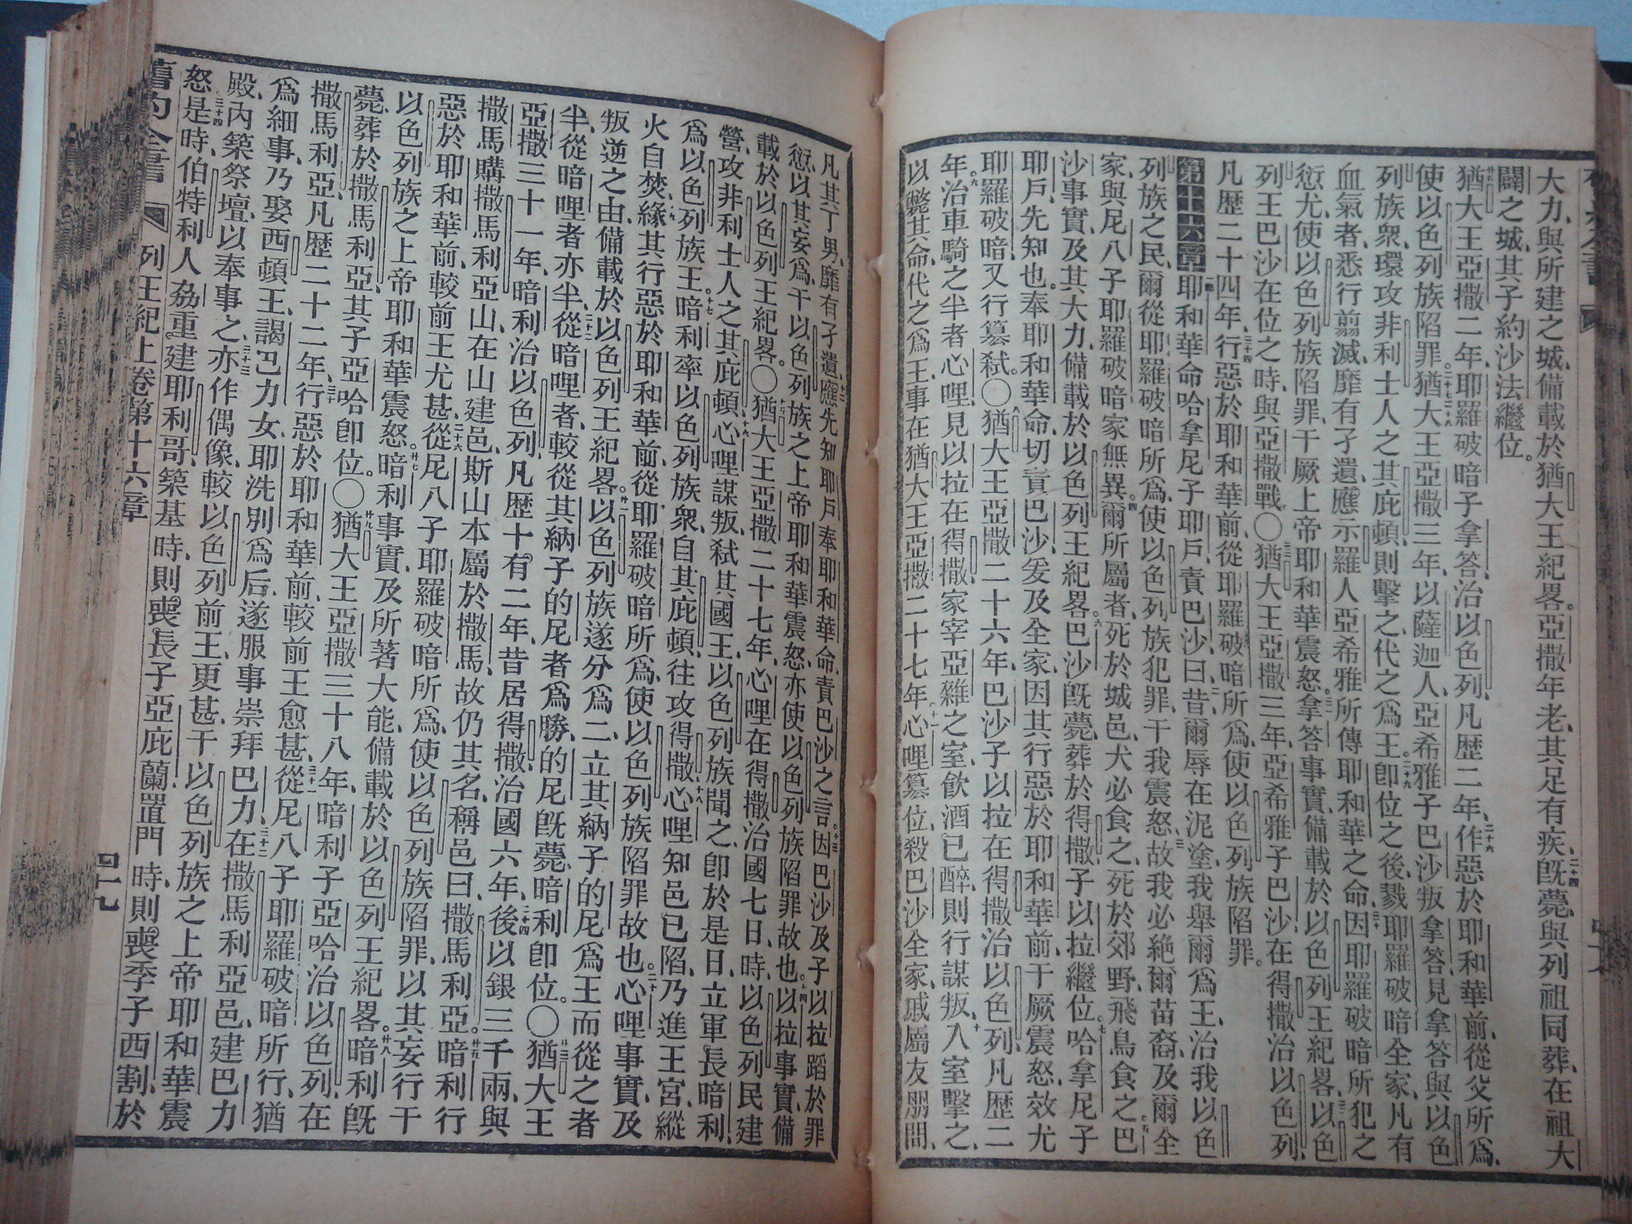 大力、與所建之城、備載於猶大王紀畧。亞撒年老、其足有疾、二十四既薨、與列祖同葬、在祖大
闢之城、其子約沙法繼位。
猶大王亞撒二年、耶羅破暗子拿答治以色列、凡歷二年、二十六作惡於耶和華前、從父所爲、
使以色列族陷罪。二十七二十八猶大王亞撒三年、以薩迦人、亞希雅子巴沙叛拿答、見拿答與以色
列族衆、環攻非利士人之其庇頓、則擊之、代之爲王。二十九卽位之後、戮耶羅破暗全家、凡有
血氣者、悉行翦滅、靡有孑遺、應示羅人亞希雅所傳耶和華之命、三十因耶羅破暗所犯之
愆尤、使以色列族陷罪、干厥上帝耶和華震怒。拿答事實、備載於以色列王紀畧。以色
列王巴沙在位之時、與亞撒戰。〇猶大王亞撒三年、亞希雅子巴沙、在得撒治以色列、
凡歷二十四年、三十四行惡於耶和華前、從耶羅破暗所爲、使以色列族陷罪。
第十六章 耶和華命哈拿尼子耶戶責巴沙曰、二昔爾辱在泥塗、我舉爾爲王、治我以色
列族之民、爾從耶羅破暗所爲、使以色列族犯罪、干我震怒、三故我必絶爾苗裔、及爾全
家、與尼八子耶羅破暗家無異。四爾所屬者、死於城邑、犬必食之、死於郊野、飛鳥食之。巴
沙事實、及其大力、備載於以色列王紀畧。六巴沙既薨、葬於得撒、子以拉繼位。七哈拿尼子
耶戶先知也。奉耶和華命、切責巴沙、爰及全家、因其行惡於耶和華前、干厥震怒、效尤
耶羅破暗、又行篡弒。〇八猶大王亞撒二十六年、巴沙子以拉在得撒、治以色列、凡歷二
年。九治車騎之半者心哩、見以拉在得撒、家宰亞雜之室、飲酒已醉、則行謀叛、十入室擊之、
以斃其命、代之爲王、事在猶大王亞撒二十七年。十一心哩篡位、殺巴沙全家、戚屬友朋間、
凡其丁男、靡有孑遺、十二應先知耶戶奉耶和華命、責巴沙之言。十三因巴沙及子以拉、蹈於罪
愆、以其妄爲、干以色列族之上帝耶和華震怒、亦使以色列族陷罪故也。十四以拉事實、備
載於以色列王紀畧。〇十五猶大王亞撒二十七年、心哩在得撒治國七日、時以色列民建
營、攻非利士人之其庇頓、十六心哩謀叛、弒其國王、以色列族聞之、卽於是日、立軍長暗利、
爲以色列族王。十七暗利率以色列族衆、自其庇頓、往攻得撒、十八心哩知邑已陷、乃進王宮、縱
火自焚、緣其行惡於耶和華前、從耶羅破暗所爲、使以色列族陷罪故也。二十心哩事實、及
叛逆之由、備載於以色列王紀畧。廿一以色列族遂分爲二、立其納子的尼爲王而從之者
半、從暗哩者亦半、從暗哩者、較從其納子的尼者爲勝、的尼既薨、暗利卽位。〇廿三猶大王
亞撒三十一年、暗利治以色列、凡歷十有二年、昔居得撒、治國六年、二十四後以銀三千兩、與
撒馬購撒馬利亞山、在山建邑、斯山本屬於撒馬、故仍其名、稱邑曰、撒馬利亞。廿五暗利行
惡於耶和華前、較前王尤甚、二十六從尼八子耶羅破暗所爲、使以色列族陷罪、以其妄行、干
以色列族之上帝耶和華震怒。廿七暗利事實、及所著大能、備載於以色列王紀畧。廿八暗利既
薨、葬於撒馬利亞、其子亞哈卽位。〇廿九猶大王亞撒三十八年、暗利子亞哈治以色列、在
撒馬利亞、凡歷二十二年、三十行惡於耶和華前、較前王愈甚、三十一從尼八子耶羅破暗所行、猶
爲細事、乃娶西頓王、謁巴力女、耶洗別爲后、遂服事崇拜巴力、三十二在撒馬利亞邑、建巴力
殿、內築祭壇、以奉事之、三十三亦作偶像、較以色列前王更甚、干以色列族之上帝耶和華震
怒、三十四是時、伯特利人劦重建耶利哥、築基時、則喪長子亞庇蘭、置門時、則喪季子西割、於
舊約全書 列王紀上卷 第十六章 四十九